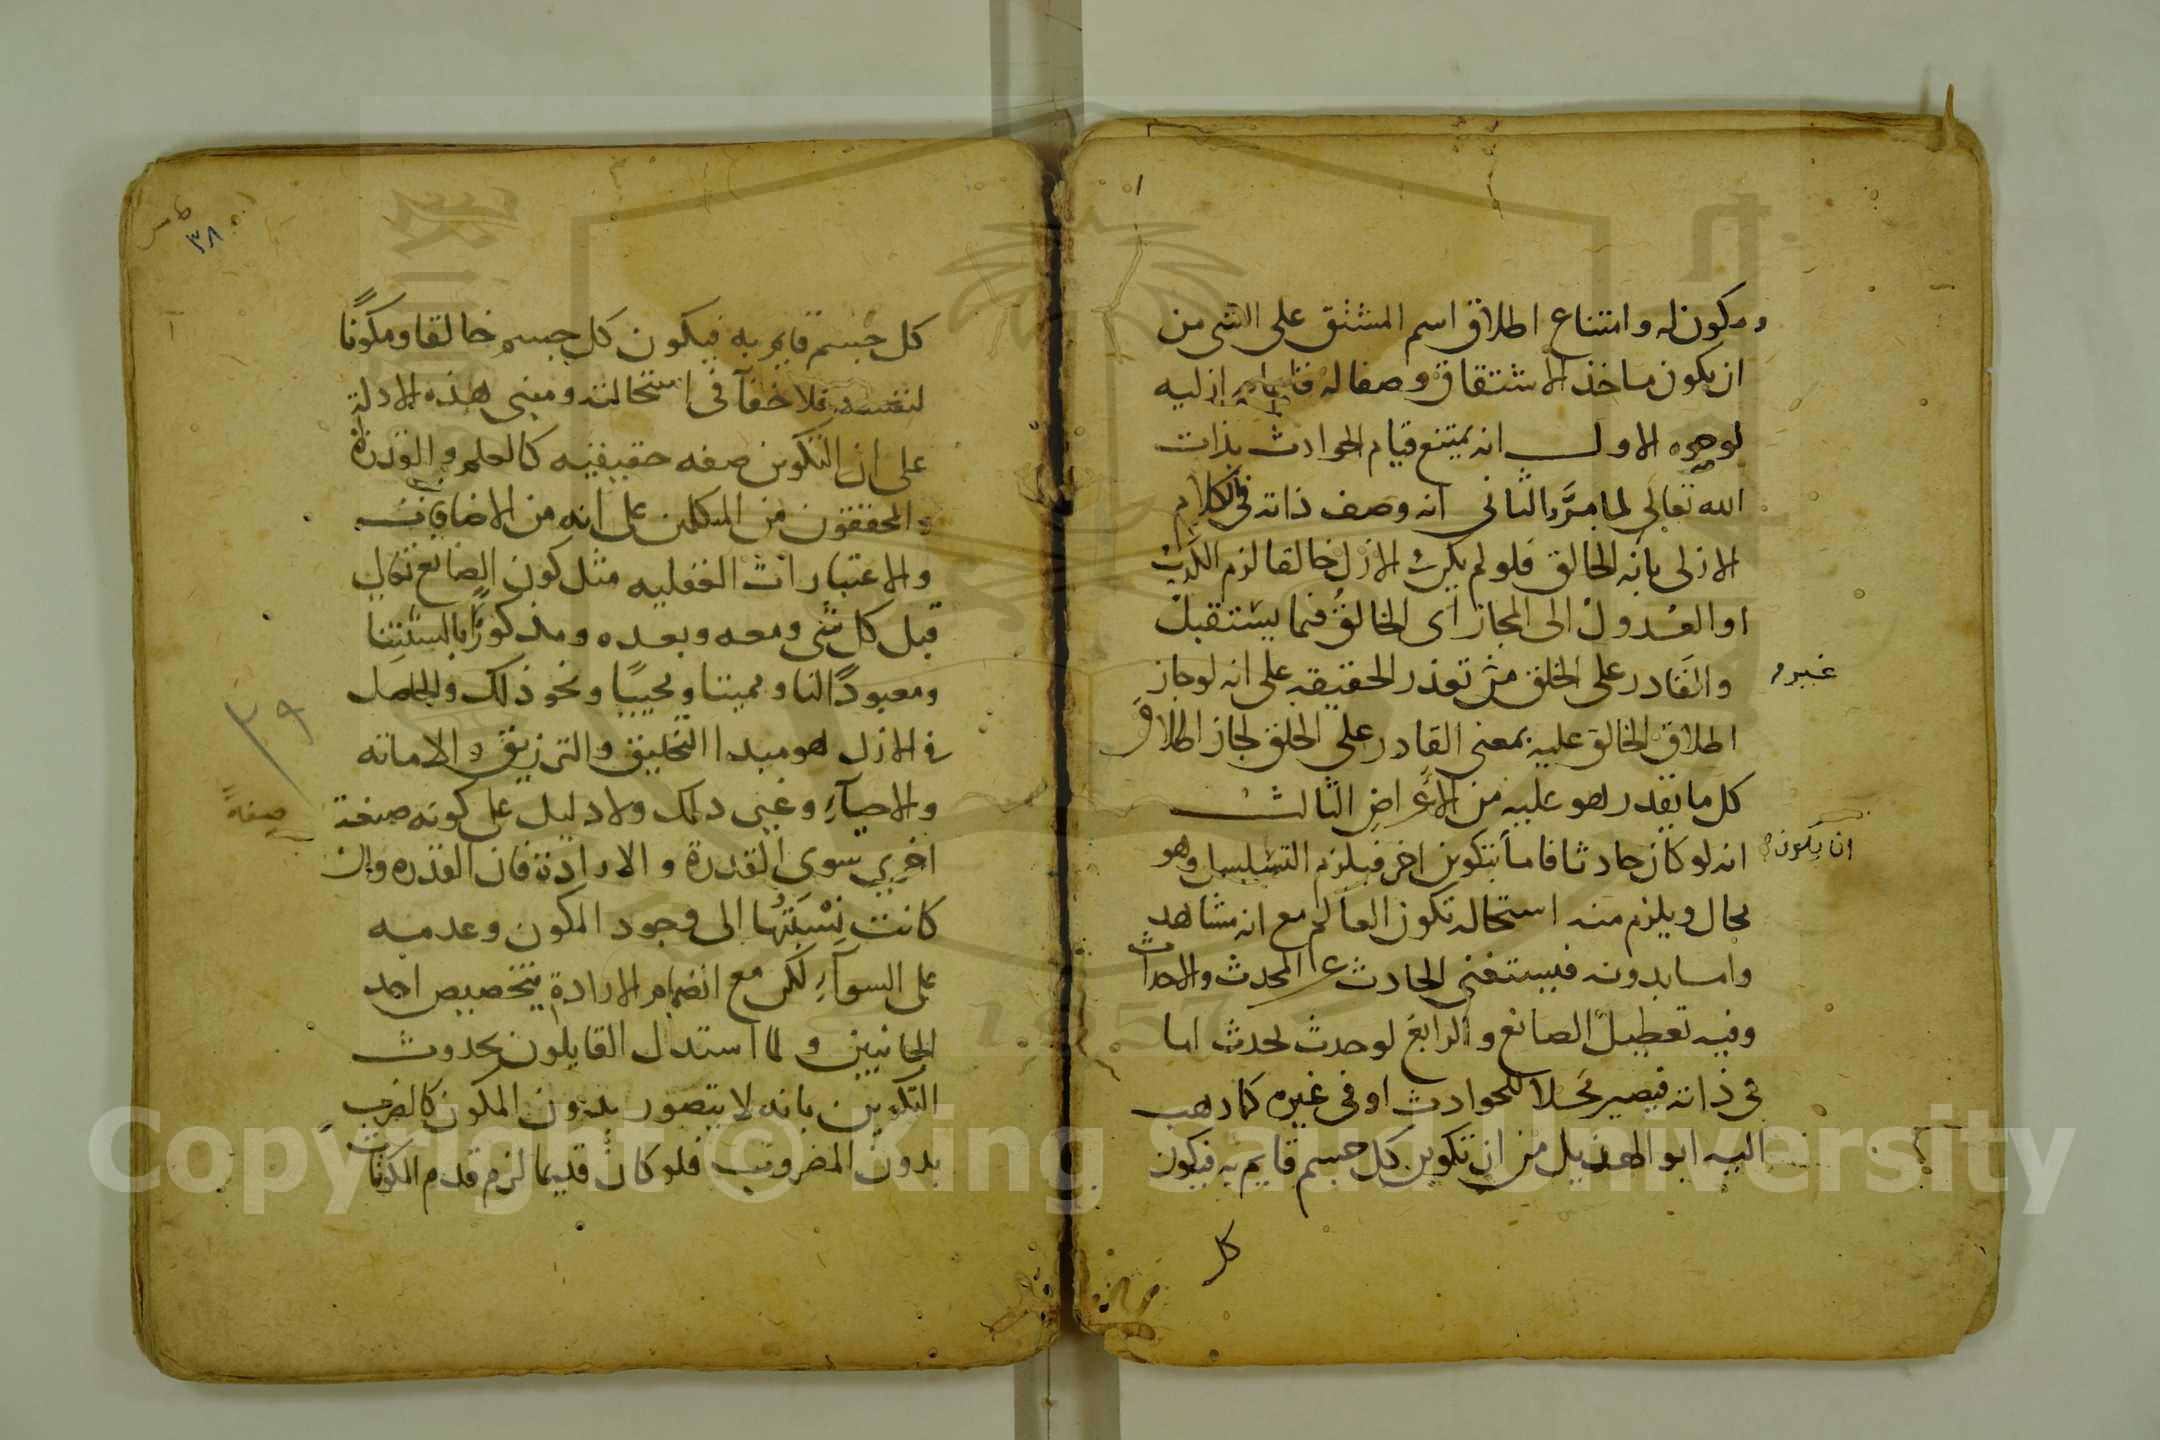 ومكون له وامتناع اطلاق اسم المشتق على الشى من
ان يكون ماخذ الاشتقاق وصفا له قايما به ازليه
لوجوه الاول انه يمتنع قيام الحوادث بذات
الله تعالى لما مر والثانى انه وصف ذاته فى الكلام
الازلى بانه الخالق فلو لم يكن فى الازل خالقا لزم الكذب
او العدول الى المجاز اى الخالق فيما يستقبل
والقادر على الخلق من تعذر الحقيقه على انه لو جاز
غير
اطلاق الخالق عليه بمعنى القادر على الخلق لجاز اطلاق
كل ما يقدر هو عليه من الاعراض الثالث
انه لو كان حادثا فاما بتكوين اخر فيلزم التسلسل وهو
ان يكون
محال ويلزم منه استحالة تكون العالم مع انه مشاهد
واما بدونه فيستغنى الحادث عن المحدث والاحداث
وفيه تعطيل الصانع والرابع لو حدث لحدث اما
فى ذاته فيصير محلا للحوادث او فى غيره كما ذهب
اليه ابو الهذيل من ان تكوين كل جسم قايم به فيكون
كل
٣٨
كل جسم قايم به فيكون كل جسم خالقا ومكونا
لنفسه فلا خفآ فى استحالته ومبنى هذه الادلة
على ان التكوين صفه حقيقيه كالعلم والقدرة
والمحققون من المتكلمين على انه من الاضافات
والاعتبارات العقليه مثل كون الصانع تعالى
قبل كل شى ومعه وبعده ومذكورًا بالسنتنا
ومعبودًا لنا ومميتنا ومحييًا ونحو ذلك والحاصل
٣٩
فى الازل هو مبدا التخليق والترزيق والاماته
والاحيآء وغير ذلك ولا دليل على كونه صفة
صفةً
اخرى سوى القدرة والارادة فان القدره وان
كانت نِسْبَتُها الى وجود المكون وعدمه
على السوآء لكن مع انضمام الارادة يتخصيص احد
الجانبين و لما استدل القايلون بحدوث
التكوين بانه لا يتصور بدون المكون كالضرب
بدون المضروب فلو كان قديما لزم قدم المكونات
Copyright © King Saud University
1957